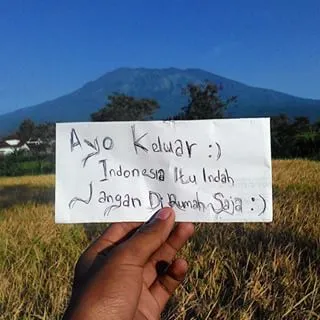 Ayo Keluar :)
Indonesia Itu Indah
Jangan Di Rumah Saja :)